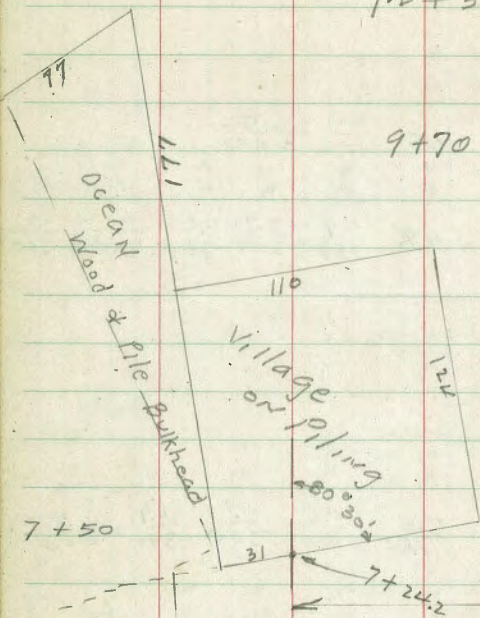 12 + 5
77
9 + 70
177
Ocean
Wood & Pile Bulkhead
110
Village
on Piling
124
80° 30'
7 + 50
31
7 + 24.2